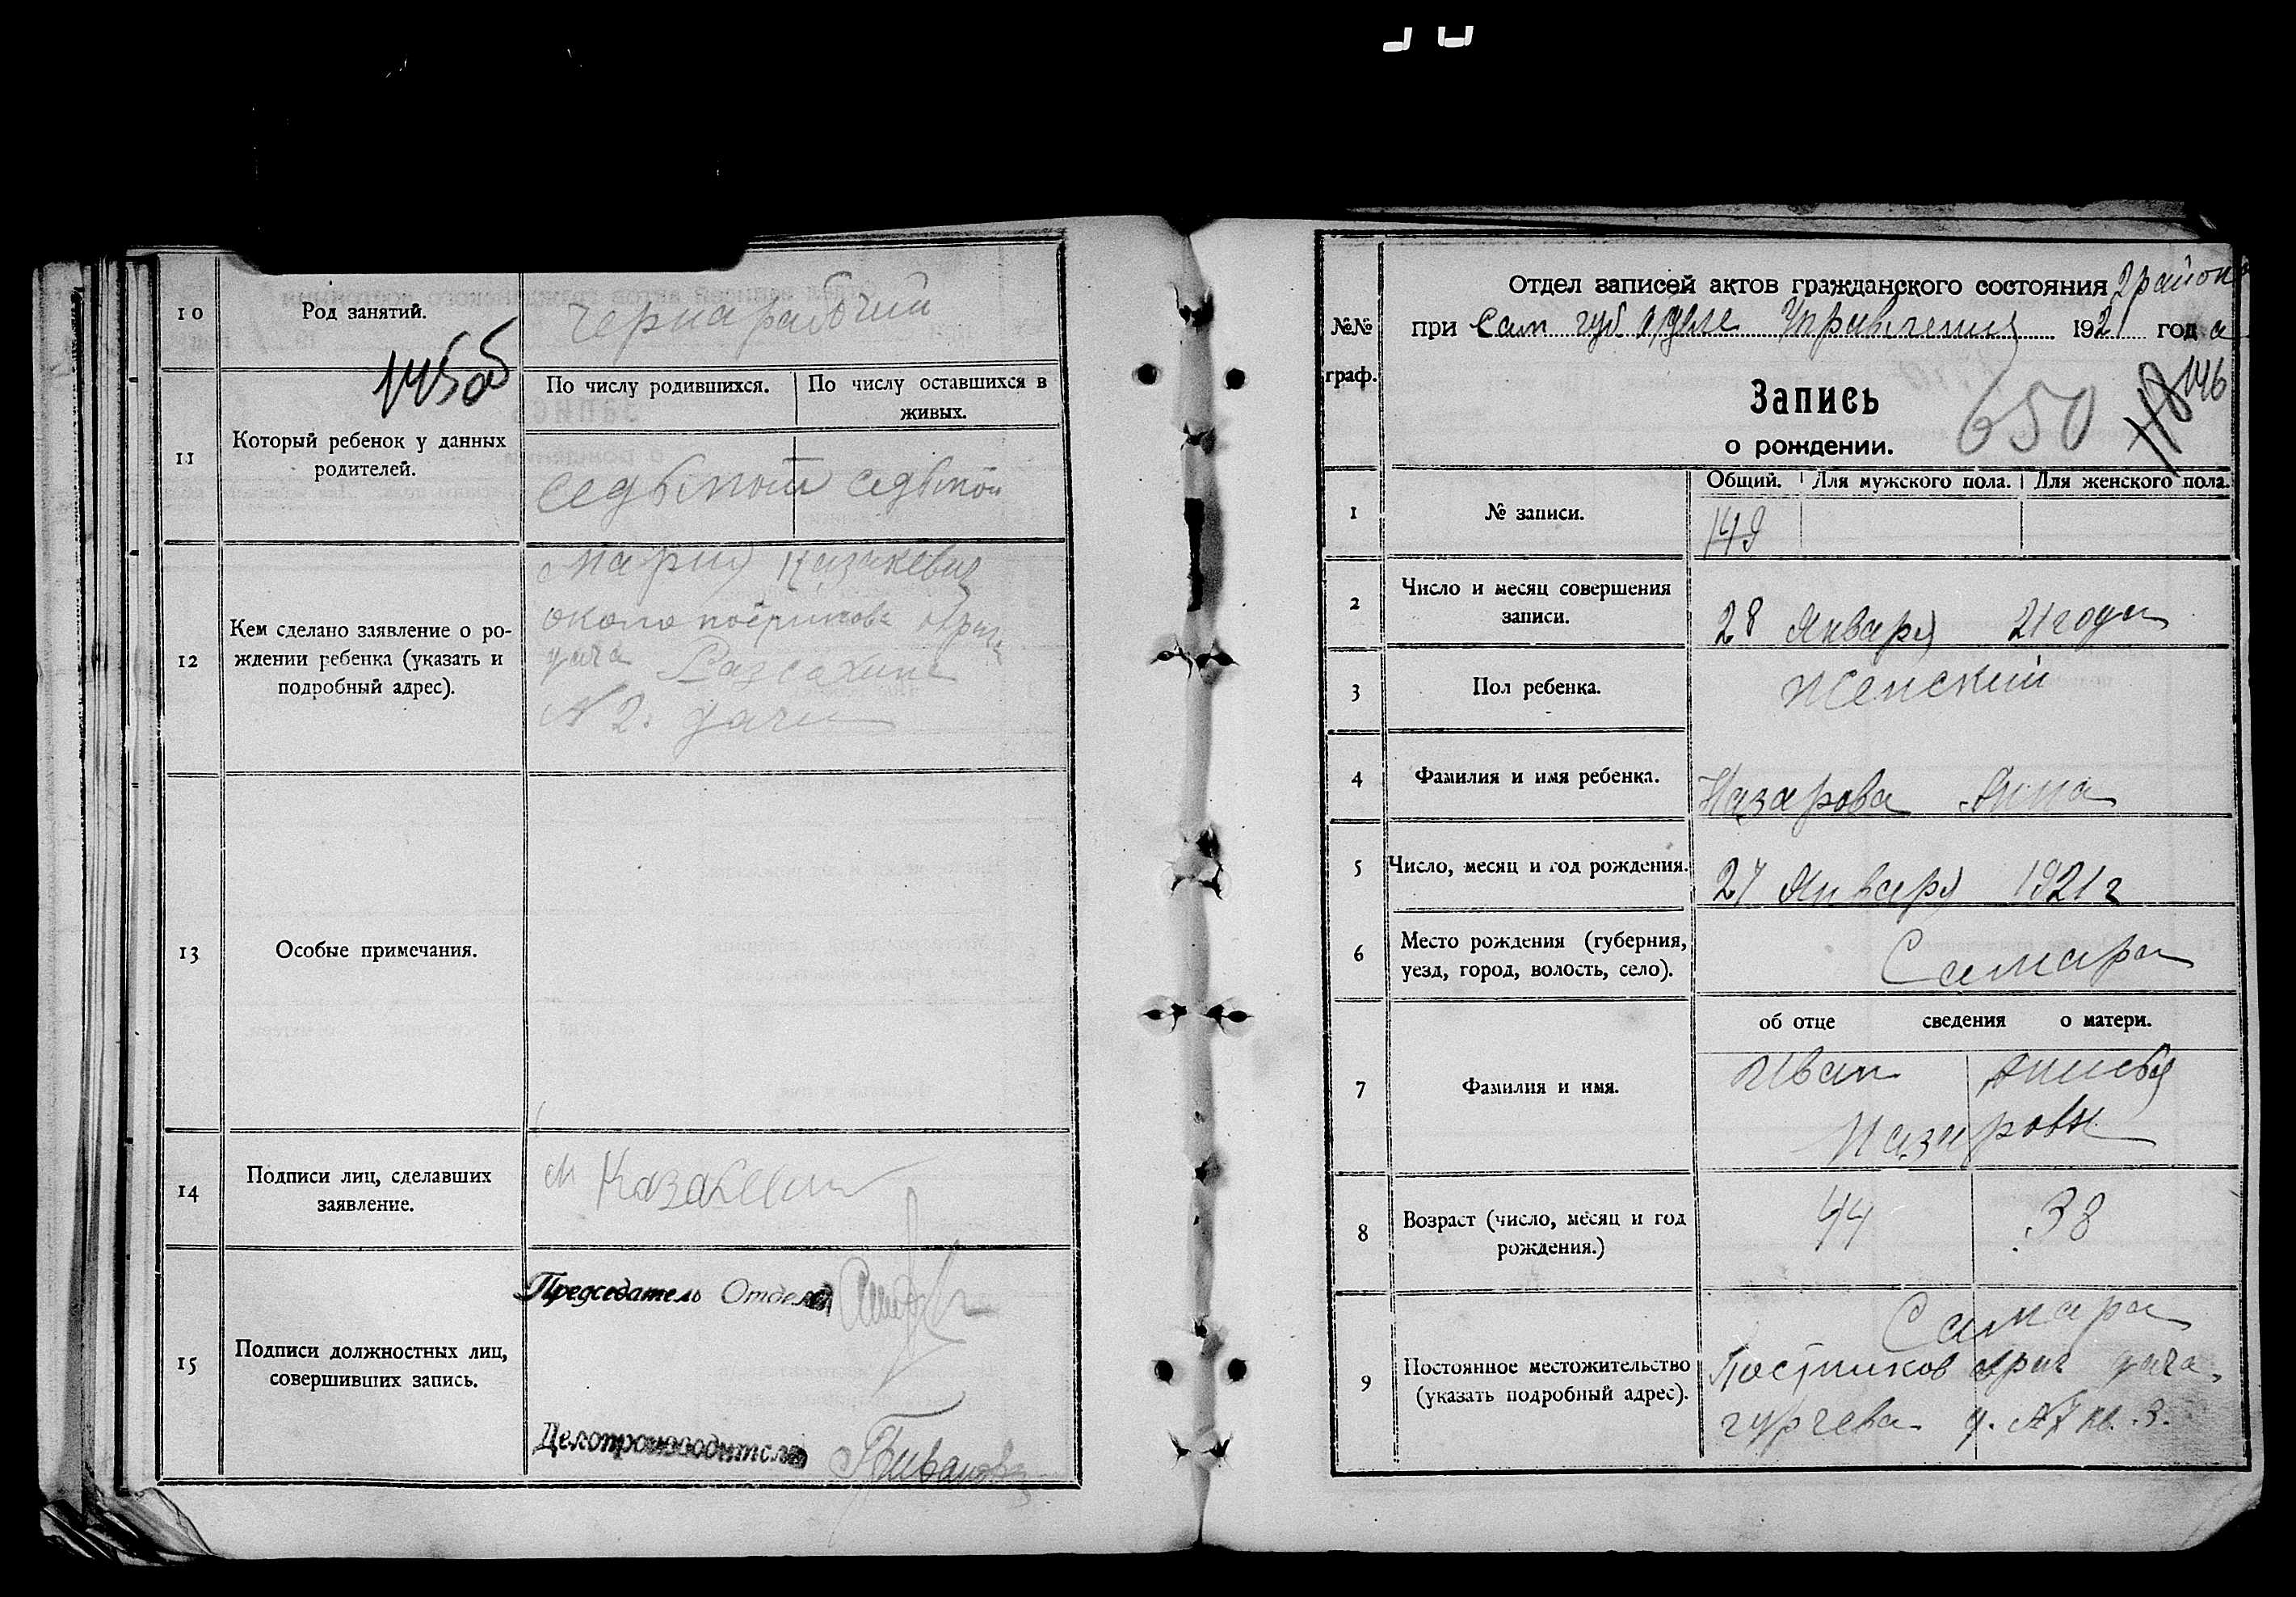 10
Род занятий.
чернарабочий
145об
11
Который ребенок у данных
родителей.
По числу родившихся.
По числу оставшихся в
живых.
седьмой
седьмой
12
Кем сделано заявление о ро-
ждении ребенка (указать и
подробный адрес).
Мария Казакевич
около
дача
N 2. дачи
13
Особые примечания.
14
Подписи лиц, сделавших
заявление.
М Казакевич
15
Подписи должностных лиц,
совершивших запись.
Председатель Отдела
Делопроизводитель
№№
граф.
Отдел записей актов гражданского состояния 2 района
при Сам губ отделе Управления 1921 года
Запись
о рождении.
650
146
1
№ записи.
Общий.
Для мужского пола.
Для женского пола.
149
2
Число и месяц совершения
записи.
28 Января 21 года
3
Пол ребенка.
Женский
4
Фамилия и имя ребенка.
Назарова Анна
5
Число, месяц и год рождения.
27 Января 1921 г
6
Место рождения (губерния,
уезд, город, волость, село).
Самара
об отце
сведения
о матери.
7
Фамилия и имя.
Иван
Анисья
Назаровы
8
Возраст (число, месяц и год
рождения.)
44
38
9
Постоянное местожительство
(указать подробный адрес).
Самара
Постников овраг дача
д. N 7 кв. 3.